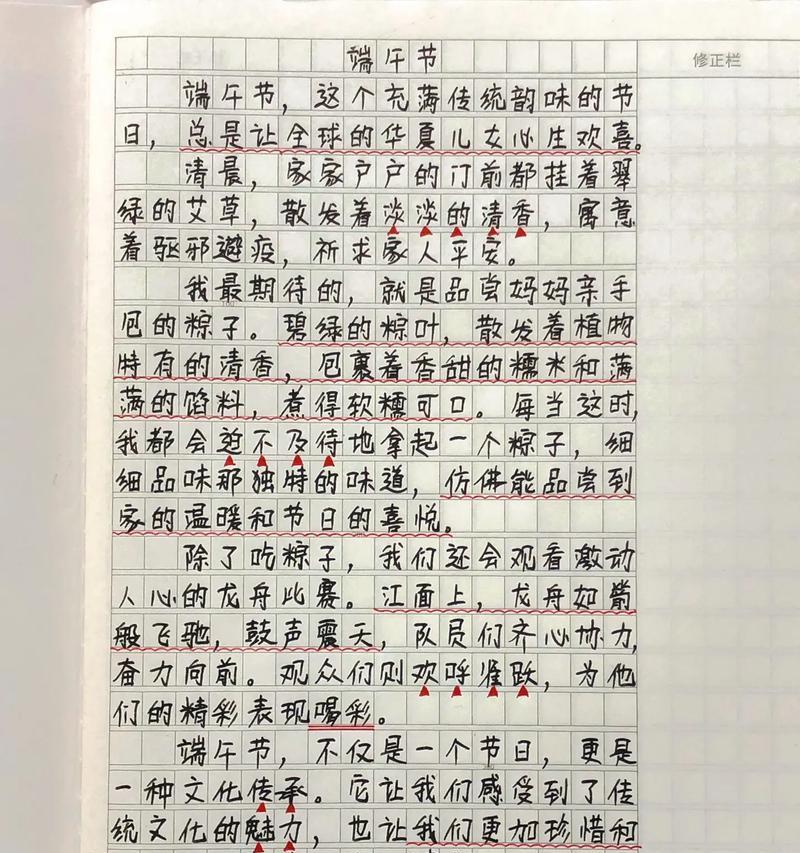 端午节
修正栏
端午节，这个充满传统韵味的节
日，总是让全球的华夏儿女心生欢喜。
清晨，家家户户的门前都挂着翠
绿的艾草，散发着淡淡的清香，寓意
着驱邪避疫，祈求家人平安。
我最期待的，就是品尝妈妈亲手
包的粽子。碧绿的粽叶，散发着植物
特有的清香，包裹着香甜的糯米和满
满的馅料，煮得软糯可口。每当这时，
我都会迫不及待地拿起一个粽子，细
细品味那独特的味道，仿佛能品尝到
家的温暖和节日的喜悦。
除了吃粽子，我们还会观看激动
人心的龙舟比赛。江面上，龙舟如箭
般飞驰，鼓声震天，队员们齐心协力，
奋力向前。观众们则欢呼雀跃，为他
们的精彩表现喝彩。
端午节，不仅是一个节日，更是
一种文化传承。它让我们感受到了传
统文化的魅力，也让我们更加珍惜和